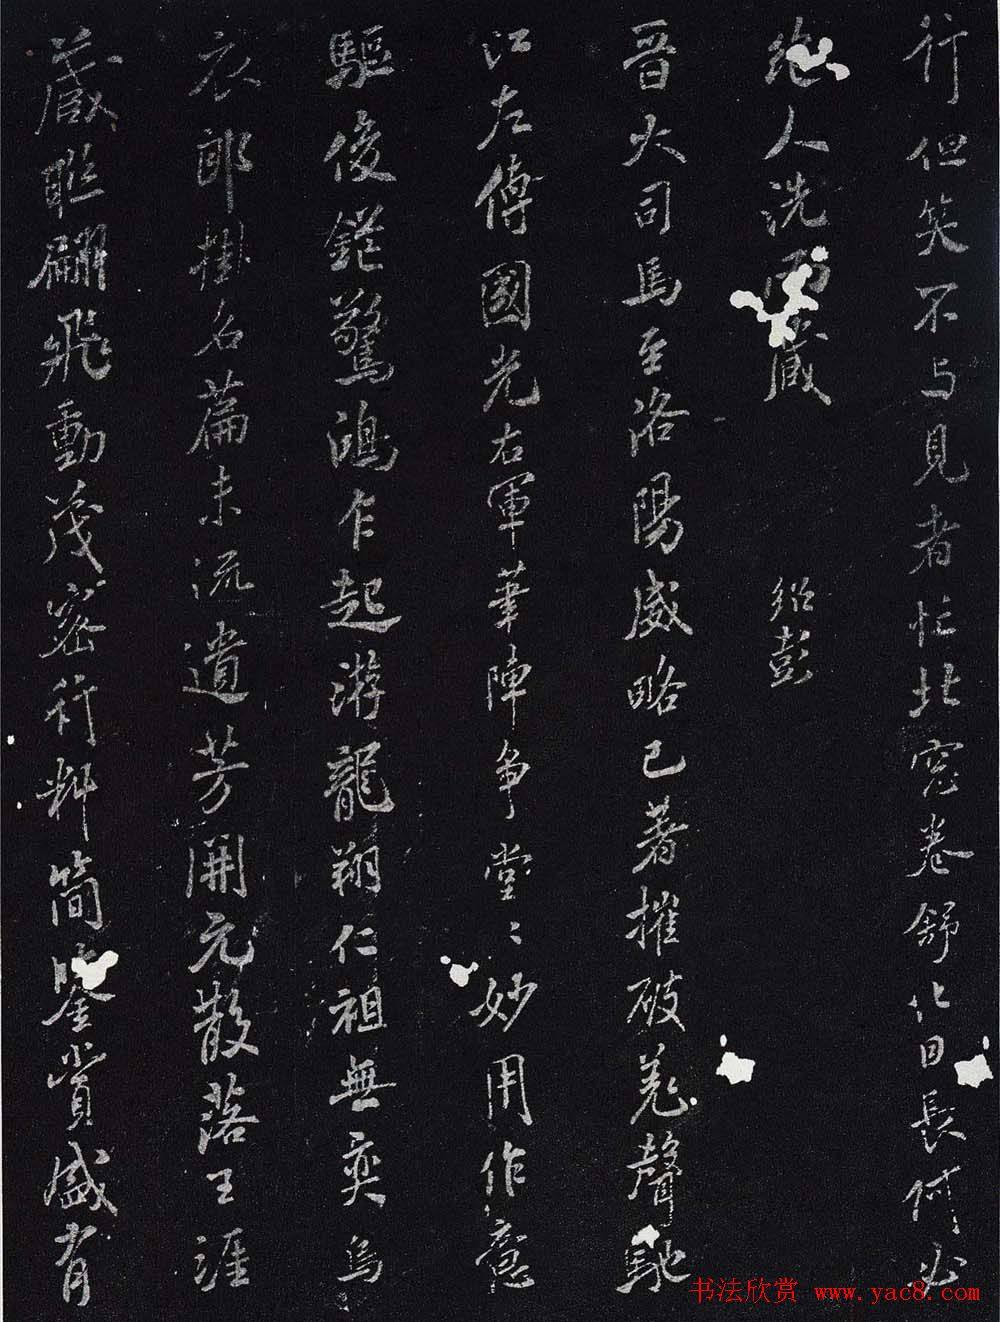 行但笑不与見者忙北窓卷舒化日長何必
絶人洗而藏 紹彭
晉大司馬至洛陽威略已著摧破羌聲馳
江左傳國光右軍筆陣爭堂〻妙用作意
驅俊鋩驚鴻乍起游龍翔仁祖無奕烏
衣郎掛名篇末流遺芳開元散落王涯
藏聯翩飛動茂密行料簡鑒賞盛有
书法欣赏 www.yac8.com